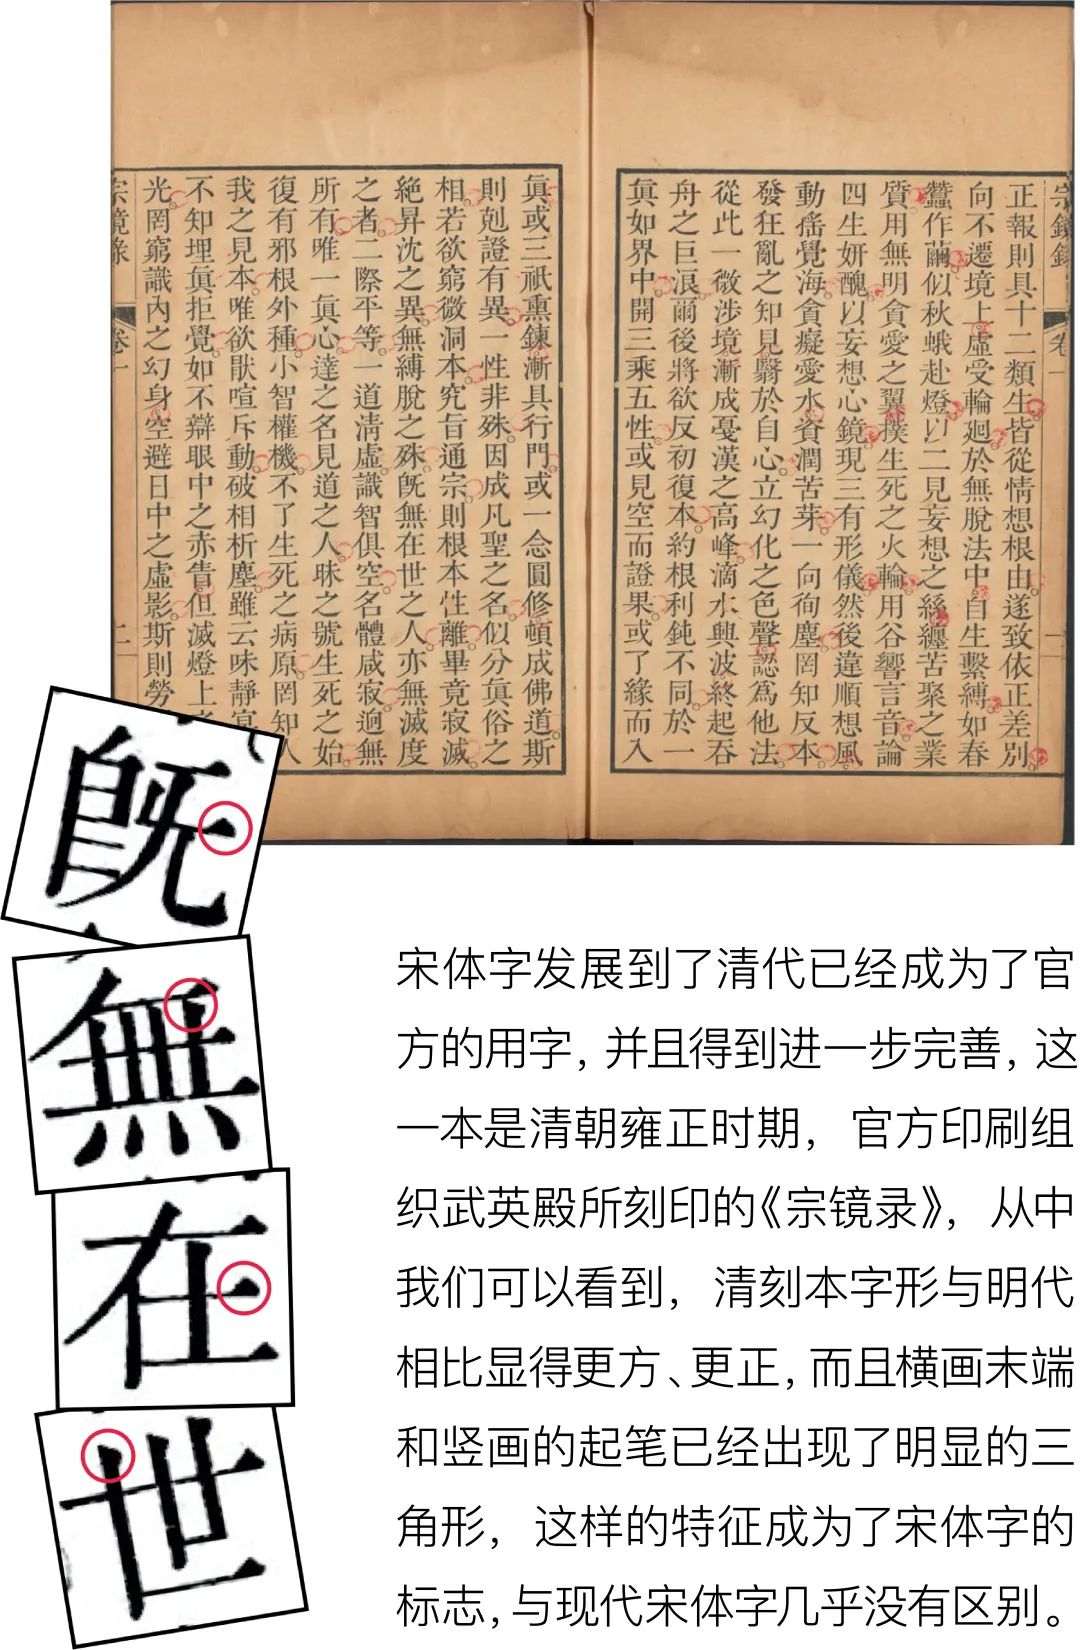 宗鏡錄 卷一
正報則具十二類生皆從情想根由遂致依正差別
向不遷境上虛受輪廻於無脫法中自生繫縛如春
蠶作繭似秋蛾赴燈以二見妄想之絲纏苦聚之業
質用無明貪愛之翼撲生死之火輪用谷響言音論
四生妍醜以妄想心鏡現三有形儀然後違順想風
動搖覺海貪癡愛水資潤苦芽一向徇塵罔知反本
發狂亂之知見翳於自心立幻化之色聲認爲他法
從此一微涉境漸成戛漢之高峰滴水興波終起吞
舟之巨浪爾後將欲反初復本約根利鈍不同於一
眞如界中開三乘五性或見空而證果或了緣而入
眞或三祇熏鍊漸具行門或一念圓修頓成佛道斯
則剋證有異一性非殊因成凡聖之名似分眞俗之
相若欲窮微洞本究旨通宗則根本性離畢竟寂滅
絕昇沈之異無縛脫之殊旣無在世之人亦無滅度
之者二際平等一道淸虛識智俱空名體咸寂迥無
所有唯一眞心達之名見道之人昧之號生死之始
復有邪根外種小智權機不了生死之病原罔知人
我之見本唯欲猒喧斥動破相析塵雖云味靜冥
不知埋眞拒覺如不辯眼中之赤眚但滅燈上
光罔窮識內之幻身空避日中之虛影斯則勞
宗鏡錄 卷一 二
旣
無
在
世
宋体字发展到了清代已经成为了官
方的用字，并且得到进一步完善，这
一本是清朝雍正时期，官方印刷组
织武英殿所刻印的《宗镜录》，从中
我们可以看到，清刻本字形与明代
相比显得更方、更正，而且横画末端
和竖画的起笔已经出现了明显的三
角形，这样的特征成为了宋体字的
标志，与现代宋体字几乎没有区别。